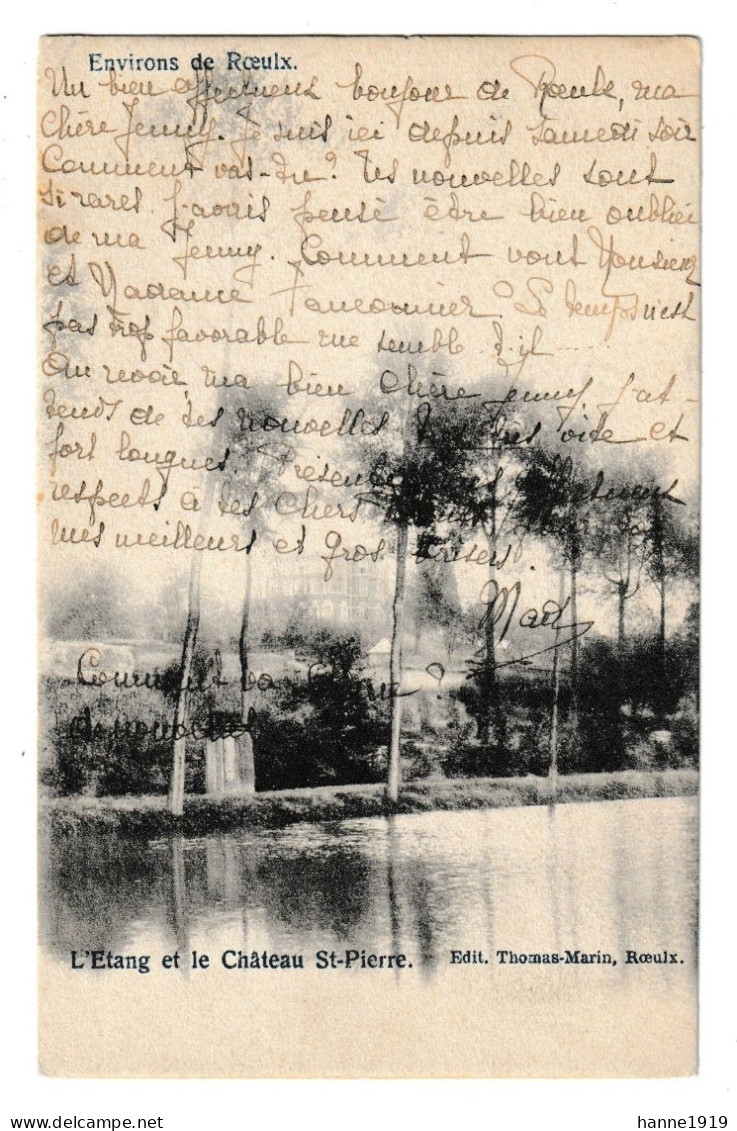 Environs de Rœulx.
Un bien affectueux bonjour de Rœulx, ma
chère Jenny. Je suis ici depuis samedi soir
Comment vas-tu? Tes nouvelles sont
si rares. J'avais pensé être bien oubliée
de ma Jenny. Comment vont Monsieur
et Madame ? Le temps n'est
pas trop favorable me semble-t-il
Au revoir, ma bien chère Jenny, j'at-
tends de tes nouvelles très très vite et
fort longues. Présente
respects à tes chers
mes meilleurs et gros baisers.
Comment va ?
de nouvelles
L'Etang et le Château St-Pierre.
Edit. Thomas-Marin, Rœulx.
hanne1919